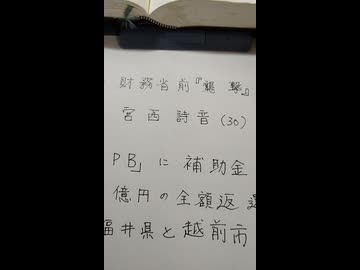 財務省前『襲撃』
宮西詩音(30)
PB」に補助金
億円の全額返還
福井県と越前市